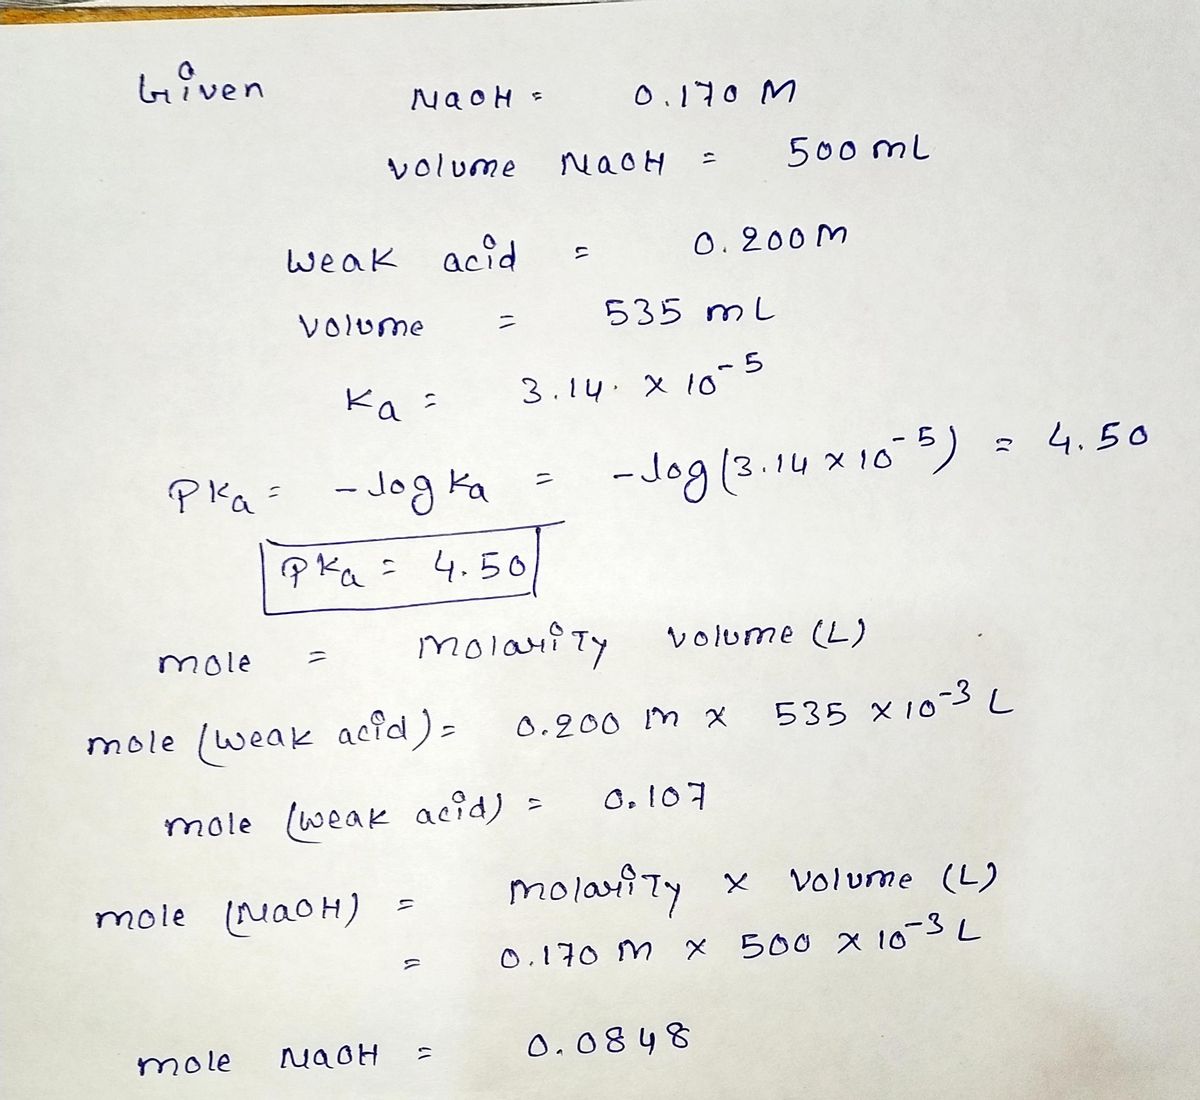 Given NaOH = 0.170 M
volume NaOH = 500 mL
weak acid = 0.200 M
volume = 535 mL
Ka = 3.14 x 10⁻⁵
PKa = -log Ka = -log (3.14 x 10⁻⁵) = 4.50
PKa = 4.50
mole = molarity volume (L)
mole (weak acid) = 0.200 M x 535 x 10⁻³ L
mole (weak acid) = 0.107
mole (NaOH) = molarity x volume (L)
= 0.170 M x 500 x 10⁻³ L
mole NaOH = 0.0848